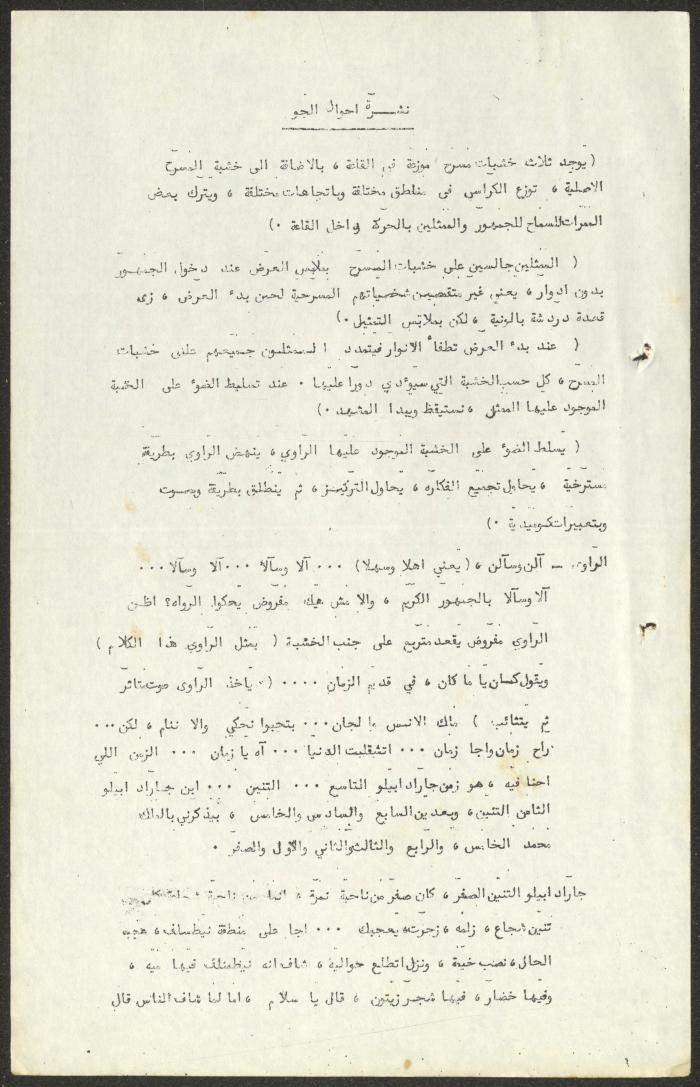 نشرة احوال الجو
( يوجد ثلاث خشبات مسرح موزعة في القاعة ، بالاضافة الى خشبة المسرح
الاصلية ، توزع الكراسي في مناطق مختلفة وباتجاهات مختلفة ، ويترك بعض
الممرات للسماح للجمهور والممثلين بالحركة داخل القاعة ٠)
( الممثلين جالسين على خشبات المسرح بملابس العرض عند دخول الجمهور
بدون ادوار ، يعني غير متقمصين شخصياتهم المسرحية لحين بدء العرض ، زى
قعدة دردشة بالونية ، لكن بملابس التمثيل ٠)
( عند بدء العرض تطفأ الانوار فيتمدد الممثلون جميعهم على خشبات
المسرح ، كل حسب الخشبة التي سيؤدي دورا عليها ٠ عند تسليط الضوء على الخشبة
الموجود عليها الممثل ، نستيقظ ويبدا المشهد ٠)
( يسلط الضوء على الخشبة الموجود عليها الراوي ، ينهض الراوي بطريقة
مسترخية ، يحاول تجميع افكاره ، يحاول التركيز ، ثم ينطلق بطريقة وبصوت
وبتعبيرات كوميدية ٠)
الراوي ــ آلن وسآلن ، ( يعني اهلا وسهلا ) ٠٠٠ آلا وسآلا ٠٠٠ آلا وسآلا ٠٠٠
آلا وسآلا بالجمهور الكريم ، والا مش هيك مفروض يحكوا الرواه؟ اظن
الراوي مفروض يقعد متربع على جنب الخشبة ( يمثل الراوي هذا الكلام )
ويقول كان يا ما كان ، في قديم الزمان ٠٠٠٠ ( ياخذ الراوى صوت متاثر
ثم يتثائب ) ملك الانس والجان ٠٠٠ بتحبوا نحكي والا ننام ، لكن ٠٠٠
راح زمان واجا زمان ٠٠٠ اتشقلبت الدنيا ٠٠٠ آه يا زمان ٠٠٠ الزمن اللي
احنا فيه ، هو زمن جاراد ابيلو التاسع ٠٠٠ التنين ٠٠٠ ابن جاراد ابيلو
الثامن التنين ، وبعدين السابع والسادس والخامس ، بيذكرني بالملك
محمد الخامس ، والرابع والثالث والثاني والاول والصفر ٠
جاراد ابيلو التنين الصفر ، كان صفر من ناحية نمرة ، انما من ناحية
تنين شجاع ، زلمه ، زحرت يعجبك ٠٠٠ اجا على منطقة نيطسلف ، عجبه
الحال ، نصب خيمة ، ونزل اتطلع حواليه ، شاف انه نيطسلف فيها ميه ،
وفيها خضار ، فيها شجر زيتون ، قال يا سلام ، اما لما شاف الناس قال